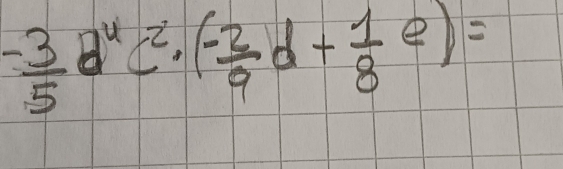 -3/5 d⁴ c² · (-2/9 d + 1/8 e) =